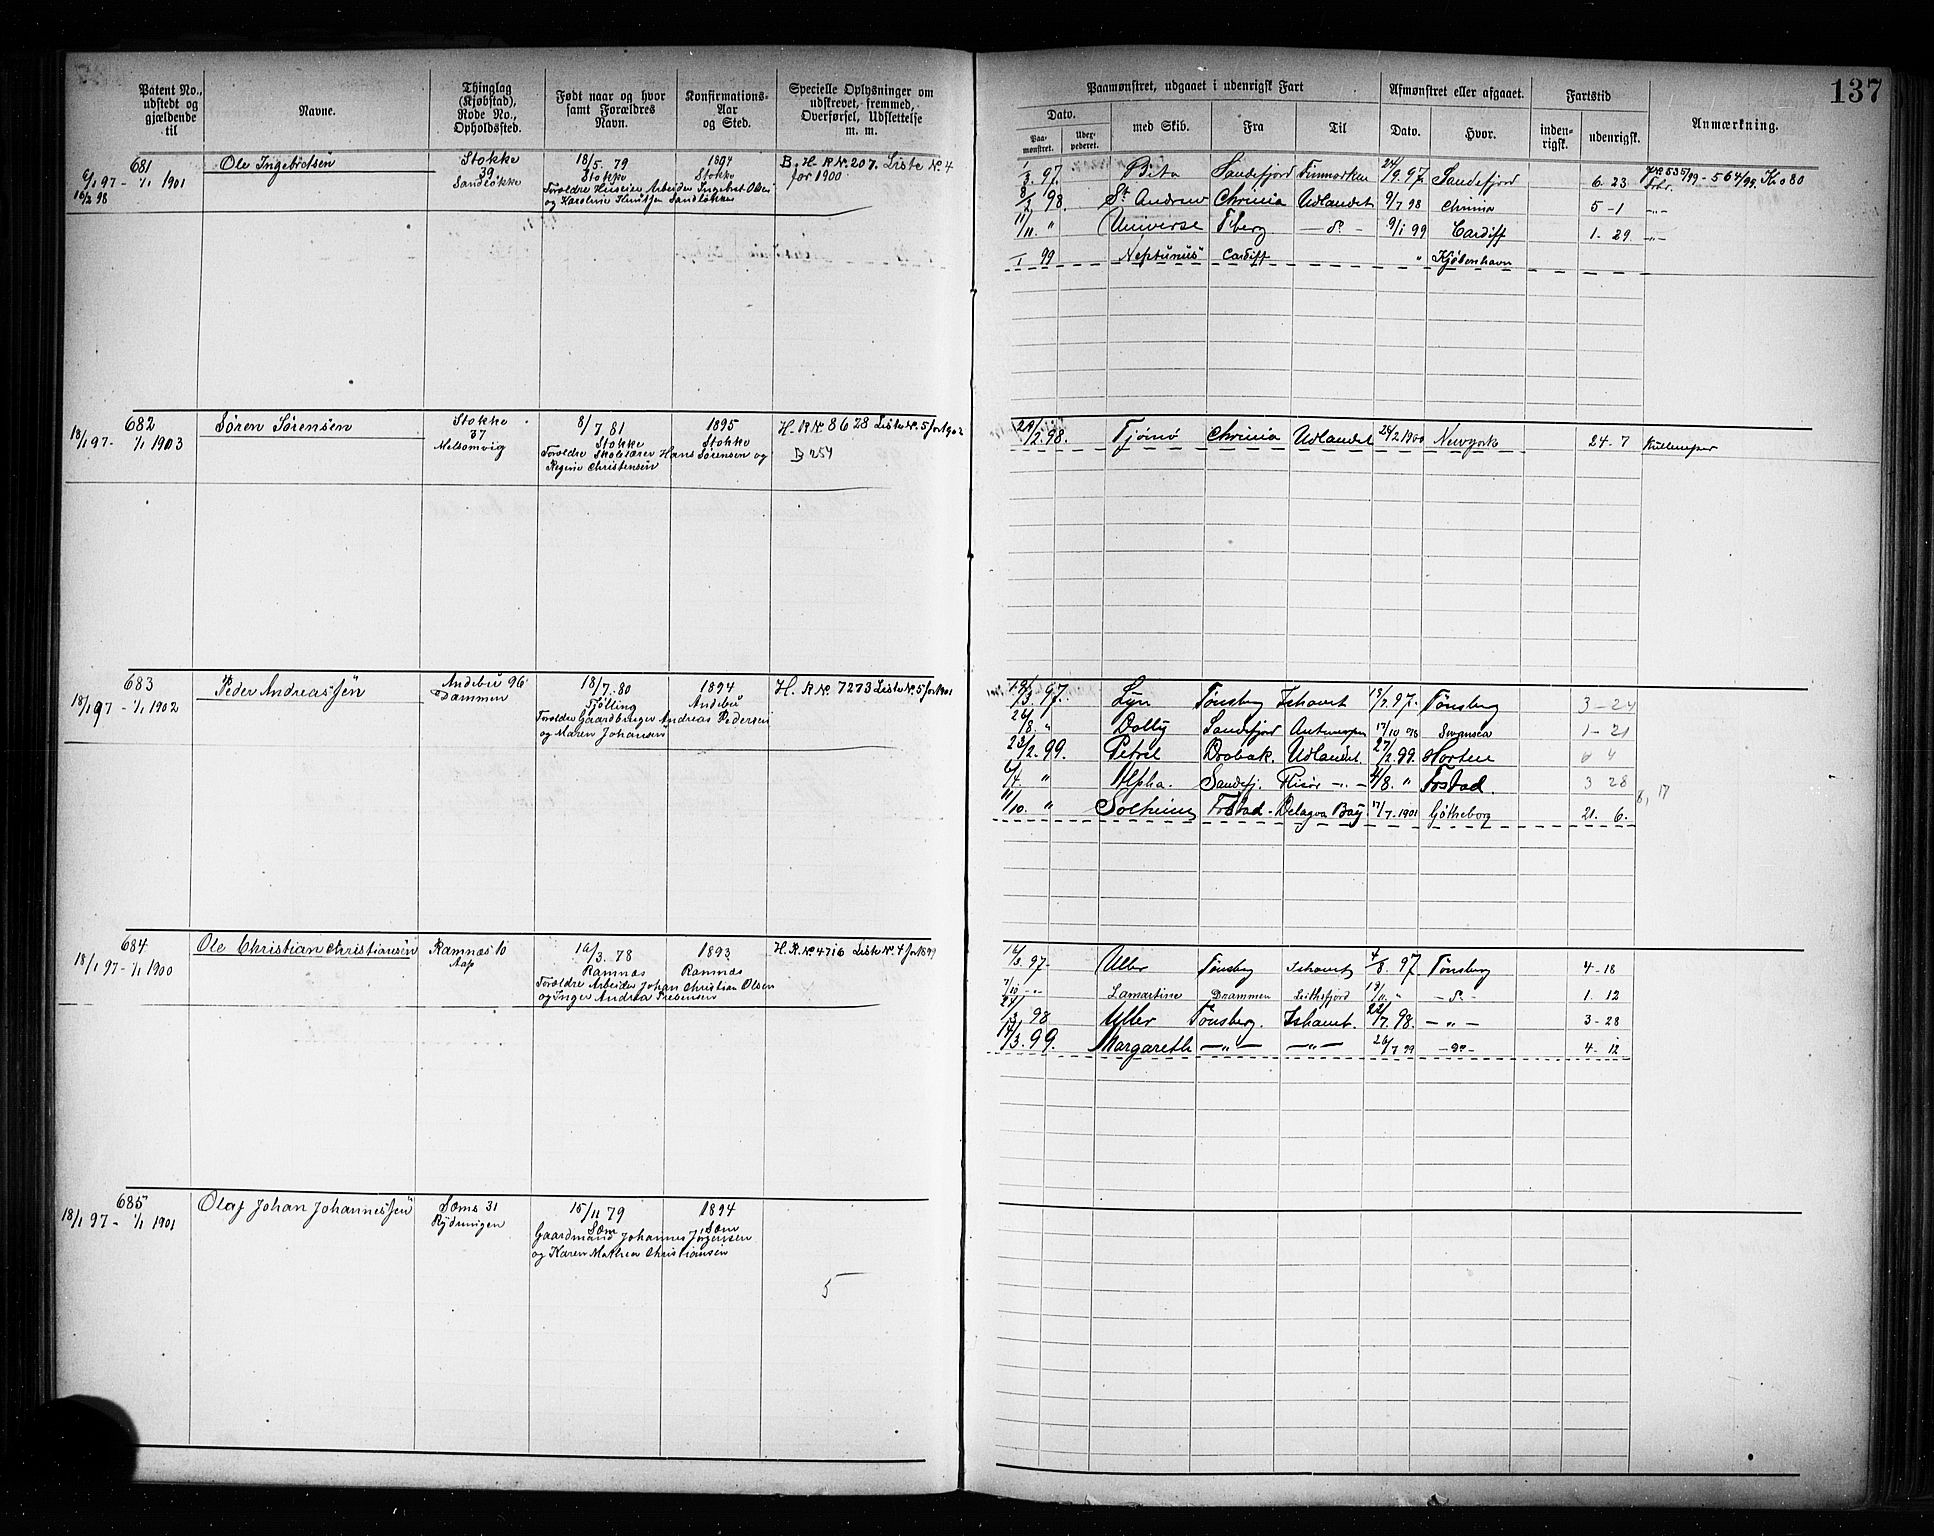 137
Patent No., udstedt og gjældende til
Navne.
Thinglag (Kjøbstad), Rode No., Opholdssted.
Født naar og hvor samt Forældres Navn.
Konfirmations-Aar og Sted.
Specielle Oplysninger om udskrevet, fremmed, Overførsel, Udslettelse m. m.
Paamønstret, udgaaet i udenrigsk Fart
Afmønstret eller afgaaet.
Fartstid
Anmærkning.
Dato.
Paa-mønstret.
Udex-pederet.
med Skib.
Fra
Til
Dato.
Hvor.
inden-rigsk.
udenrigsk.
681
6/1 97 - 1/1 1901
16/2 98
Ole Ingebretsen
Stokke
39
Sandløkke
18/5. 79
Stokke
Forældre Huseier Arbeider Ingebret Olsen
og Karoline Knutsen Sandløkke
1894
Stokke
B. H. R No 207. Liste No 4
for 1900
1/3. 97. Beta Sandefjord Finmarken 24/9. 97 Sandefjord 6. 23
8/2. 98. St Andrew Chrinia Udlandet 9/7 98 Chrinia 5 - 1 -"-
11/11. " Universe Tberg - d. - 9/1 99 Cardiff 1. 29. -"-
1 99 Neptunus Cardiff " Kjøbenhavn
682
18/1 97 - 1/1 1903
Søren Sørensen
Stokke
37
Melsomvig
8/7 81
Stokke
Forældre Skolelærer Hans Sørensen og
Regine Christensen
1895
Stokke
H. R No 8628 Liste No. 5 for 1902
B 254
29/2. 98. Tjømø Chrinia Udlandet 24/2 1900 Newyork 24 - 7
683
18/1 97 - 1/1 1902
Peder Andreassen
Andebu 96
Dammen
18/7. 80
Forældre Gaardbruger Andreas Pedersen
og Maren Johansen
1894
Andebu
H. R No. 7273 Liste No. 5 for 1901
3. 97. Lyn Tønsberg Ishavet 97. Tønsberg 3 - 24
26/8. " Dolly Sandefjord Antwerpen 17/10 98 Swansea 1 - 21
23/2. 99. Petrel Drøbak. Udlandet 27/2. 99. Horten 0 4
6/4 " Alpha. Sandefj. Risør -"- 4/8. " Frstad. 3 28
11/10. " Solheim Frstad - Delagoa Bay 17/7. 1901 Gøtheborg 21. 6.
8, 17
684
18/1 97 - 1/1 1900
Ole Christian Christiansen
Ramnæs 10
Aap
16/3. 78
Ramnæs
Forældre Arbeider Johan Christian Olsen
og Inger Andrea Prebensen
1893
Ramnæs
H. R. No 4716 Liste No. 4 for 1899
16/3. 97 - Uller Tønsberg Ishavet 4/8. 97 Tønsberg 4 - 18
7/10 -"- Lamartine Drammen Leithsfjord 19/11 " - d. - 1. 12
24/3 98 Uller Tønsberg. Ishavet. 22/7. 98. -"- 3 - 28
14/3. 99. Margareth -"- -"- 26/7 99 - do - 4 - 12
685
18/1 97 - 1/1 1901
Olaf Johan Johannessen
Sæms 31
Rydningen
15/11 79
Sæm
Gaardmand Johannes Jørgensen
og Karen Mathea Christiansen
1894
Sæm
5